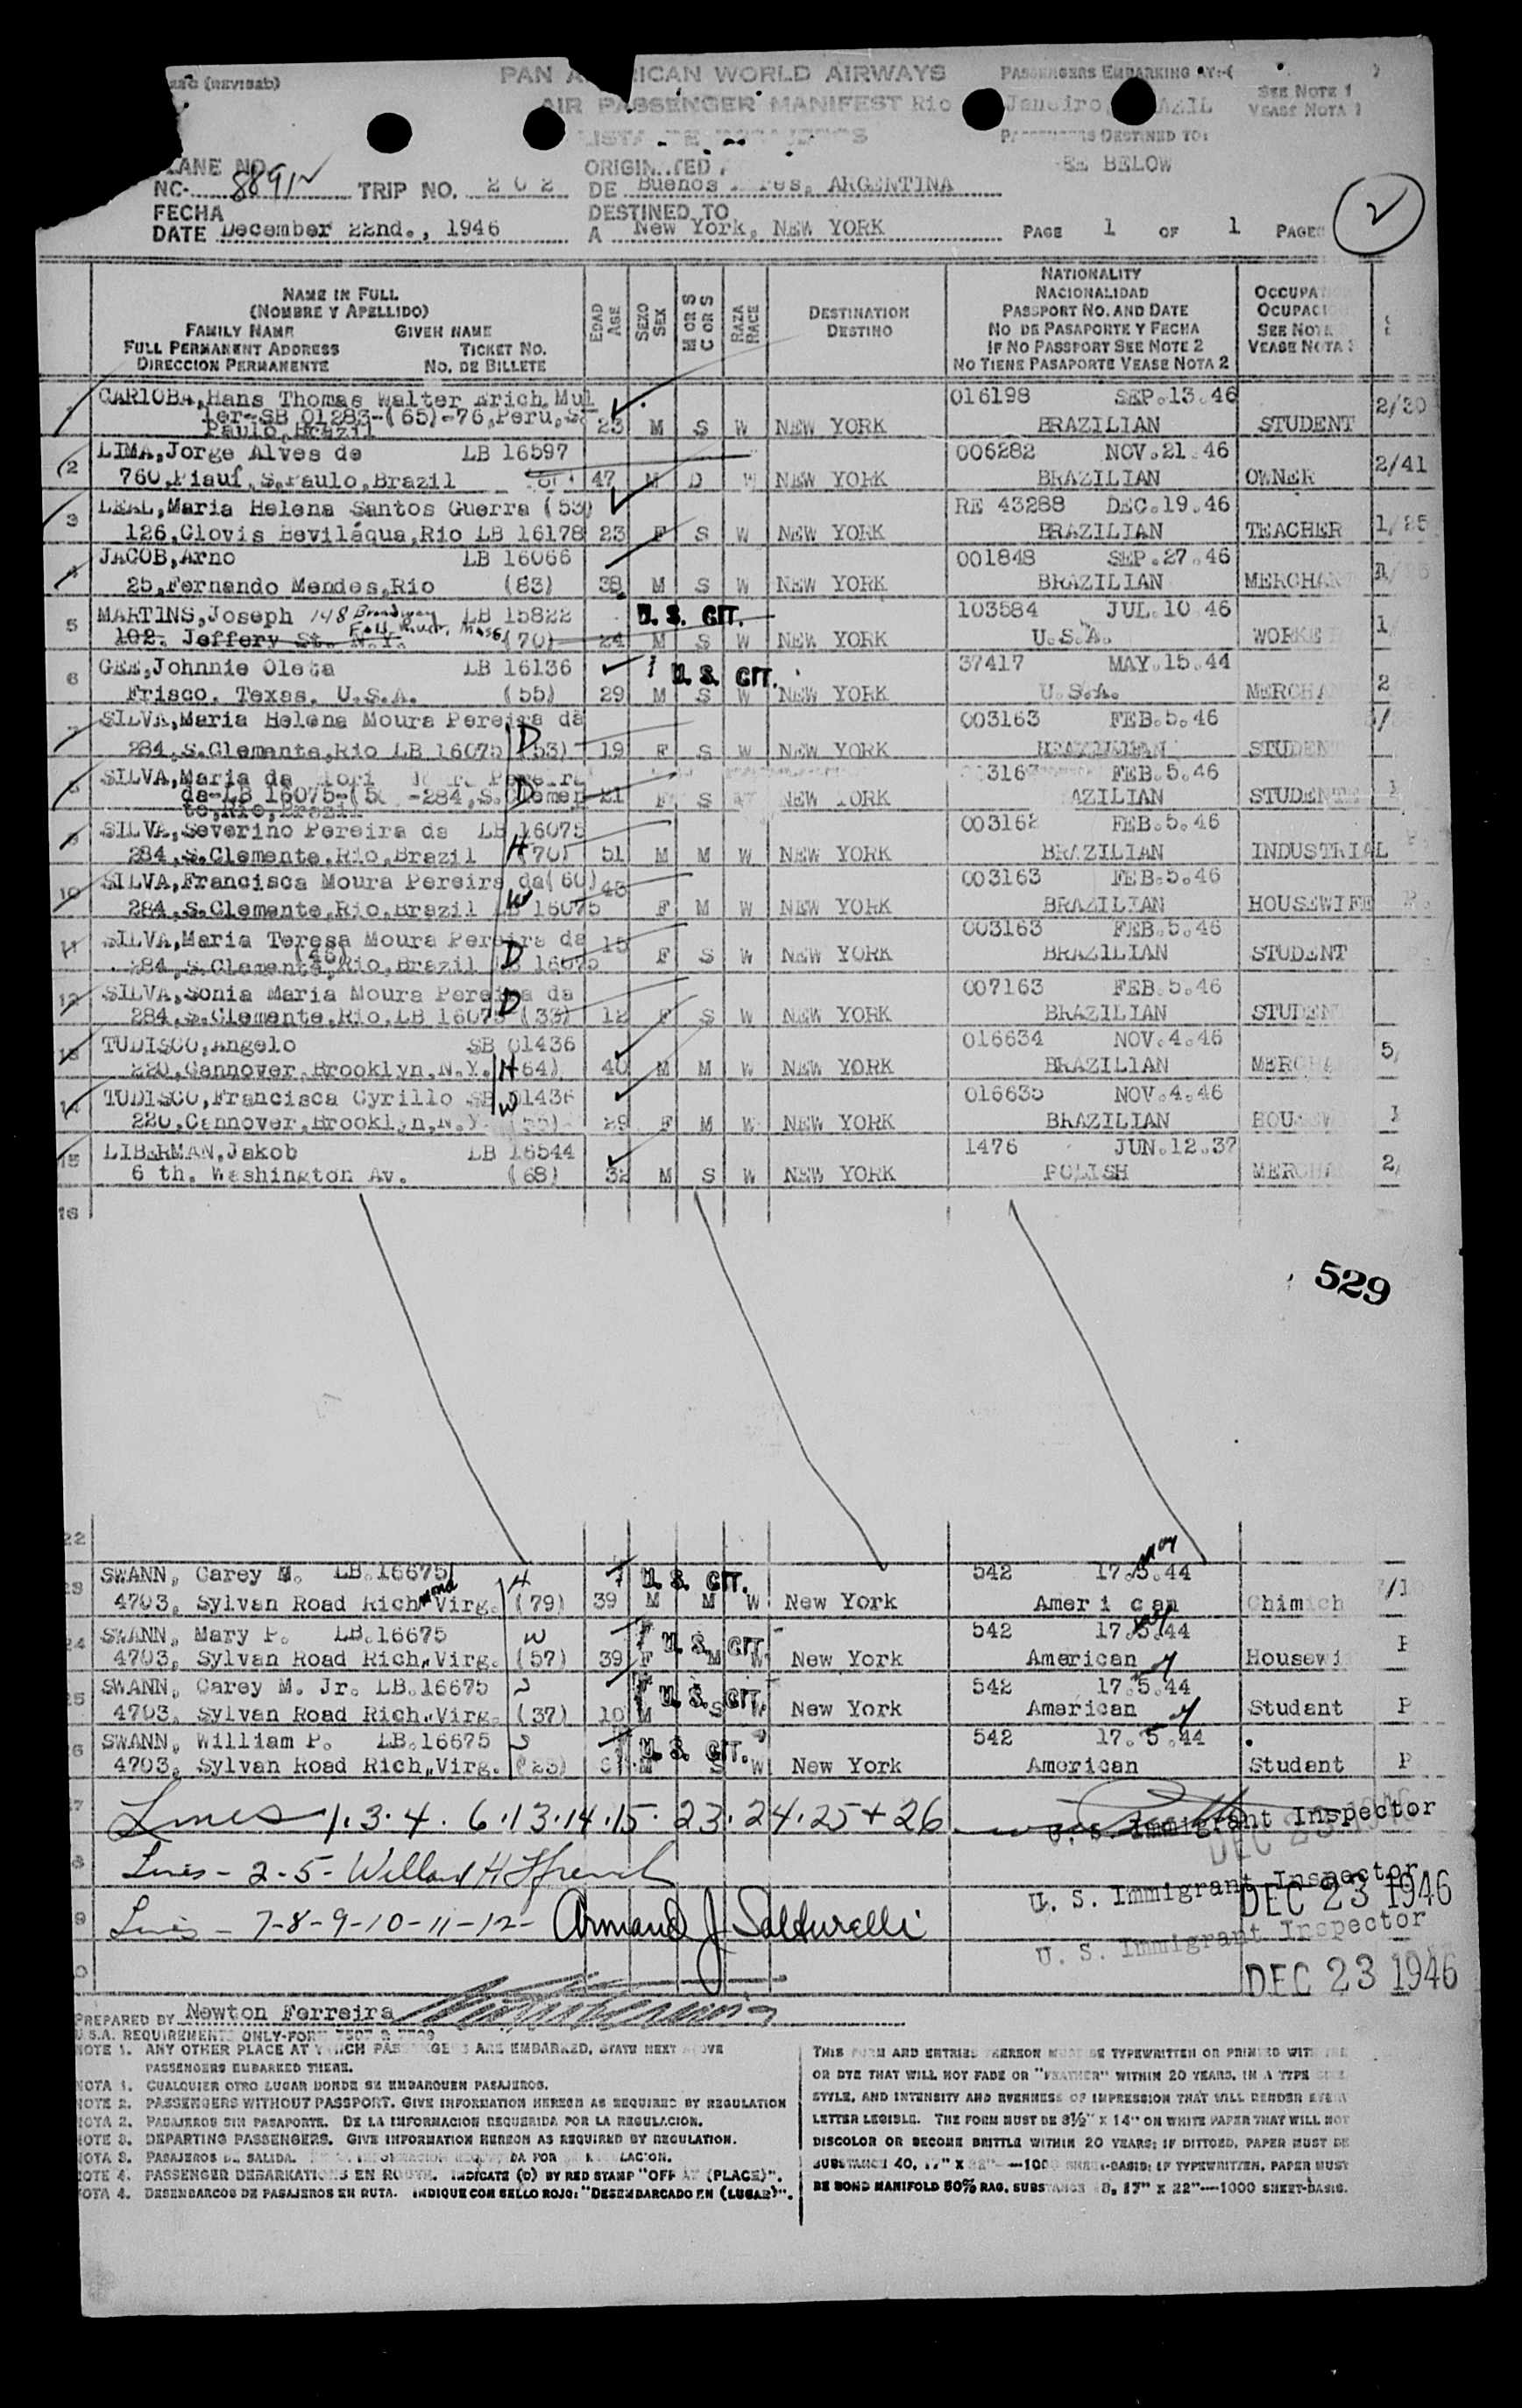 (REVISED)
PAN AMERICAN WORLD AIRWAYS
PASSENGERS EMBARKING AT:-( )
SEE NOTE 1
VEASE NOTA 1
AIR PASSENGER MANIFEST Rio Janeiro, BRAZIL
LISTA DE
PASSENGERS DESTINED TO:
SEE BELOW
PLANE NO.
NC- TRIP NO. 202
ORIGINATED
DE Buenos Aires, ARGENTINA
FECHA
DATE December 22nd., 1946
DESTINED TO
A New York, NEW YORK
PAGE 1 OF 1 PAGES
2
NAME IN FULL
(NOMBRE Y APELLIDO)
FAMILY NAME GIVEN NAME
FULL PERMANENT ADDRESS TICKET NO.
DIRECCION PERMANENTE NO. DE BILLETE
EDAD AGE
SEXO SEX
M OR S C OR S
RAZA RACE
DESTINATION
DESTINO
NATIONALITY
NACIONALIDAD
PASSPORT NO. AND DATE
NO DE PASAPORTE Y FECHA
IF NO PASSPORT SEE NOTE 2
NO TIENE PASAPORTE VEASE NOTA 2
OCCUPAT
OCUPACI
SEE NOTE
VEASE NOTA 3
CARIOBA, Hans Thomas Walter Erich Mul 016198 SEP.13.46
ler-SB 01283-(65)-76, Peru, S. 2/20
Paulo, Brazil 23 M S W NEW YORK BRAZILIAN STUDENT
2 LIMA, Jorge Alves de LB 16597 006282 NOV.21.46
760, Piauí, S. Paulo, Brazil 47 M D W NEW YORK BRAZILIAN OWNER 2/41
3 LEAL, Maria Helena Santos Guerra (53) RE 43288 DEC.19.46
126, Clovis Beviláqua, Rio LB 16178 23 F S W NEW YORK BRAZILIAN TEACHER 1/25
4 JACOB, Arno LB 16066 001848 SEP.27.46
25, Fernando Mendes, Rio (83) 38 M S W NEW YORK BRAZILIAN MERCHANT
5 MARTINS, Joseph 148 Broadway LB 15822 U. S. CIT. 103584 JUL.10 46
102. Jeffery St. N.Y. Fall River, Mass (70) 24 M S W NEW YORK U.S.A. WORKE 1/
6 GEE, Johnnie Oleta LB 16136 U. S. CIT. 37417 MAY.15.44
Frisco, Texas, U.S.A. (55) 29 M S W NEW YORK U.S.A. MERCHA 2
SILVA, Maria Helena Moura Pereira da 003163 FEB.5.46
284, S. Clemente, Rio LB 16075 (53) D 19 F S W NEW YORK BRAZILIAN STUDEN
SILVA, Maria da Moura Pereira FEB.5.46
da-LB 16075- -284, S. Clemen D 21 F S NEW YORK BRAZILIAN STUDENT
te, Rio, Brazil
9 SILVA, Severino Pereira da LB 16075 003162 FEB.5.46
284, S. Clemente, Rio, Brazil H (70) 51 M M W NEW YORK BRAZILIAN INDUSTRIAL
10 SILVA, Francisca Moura Pereira da (60) 003163 FEB.5.46
284, S. Clemente, Rio, Brazil LB 16075 W F M W NEW YORK BRAZILIAN HOUSEWIFE
11 SILVA, Maria Teresa Moura Pereira da 15 003163 FEB.5.46
284, S. Clemente, Rio, Brazil LB 16075 D F S W NEW YORK BRAZILIAN STUDENT
12 SILVA, Sonia Maria Moura Pereira da 007163 FEB.5.46
284, S. Clemente, Rio, LB 16075 (33) D 12 F S W NEW YORK BRAZILIAN STUDEN
13 TUDISCO, Angelo SB 01436 016634 NOV.4.46
220, Gannover, Brooklyn, N.Y. H (64) 40 M M W NEW YORK BRAZILIAN MERCHA 5/
14 TUDISCO, Francisca Cyrillo SB 01436 W 016635 NOV.4.46
220, Cannover, Brooklyn, N.Y. 29 F M W NEW YORK BRAZILIAN HOUSEW
15 LIBERMAN, Jakob LB 16544 1476 JUN.12.37
6 th. Washington Av. (68) 32 M S W NEW YORK POLISH MERCHA 2/
16
529
22
23 SWANN, Carey M. LB.16675 H U. S. CIT. 542 17.5.44 may
4703, Sylvan Road Richmond Virg. (79) 39 M M W New York American Chimich
24 SWANN, Mary P. LB.16675 W U. S. CIT. 542 17.5.44
4703, Sylvan Road Rich,, Virg. (57) 39 F M W New York American Housewi
25 SWANN, Carey M. Jr. LB.16675 U. S. CIT. 542 17.5.44
4703, Sylvan Road Rich,, Virg. (37) 10 M S W New York American Student P
26 SWANN, William P. LB.16675 U. S. CIT. 542 17.5.44
4703, Sylvan Road Rich,, Virg. M S W New York American Student P
Lines 1.3.4. 6.13.14.15. 23.24.25+26
U. S. Immigrant Inspector
DEC 23 1946
Lines - 2-5- Willard H Ffrench
U. S. Immigrant Inspector
DEC 23 1946
Lines - 7-8-9-10-11-12- Armand J Salturelli
U. S. Immigrant Inspector
DEC 23 1946
PREPARED BY Newton Ferreira
U.S.A. REQUIREMENTS ONLY-FORM
NOTE 1. ANY OTHER PLACE AT WHICH PASSENGERS ARE EMBARKED, STATE NEXT ABOVE
PASSENGERS EMBARKED THERE.
NOTA 1. CUALQUIER OTRO LUGAR DONDE SE EMBARQUEN PASAJEROS.
NOTE 2. PASSENGERS WITHOUT PASSPORT. GIVE INFORMATION HEREON AS REQUIRED BY REGULATION
NOTA 2. PASAJEROS SIN PASAPORTE. DE LA INFORMACION REQUERIDA POR LA REGULACION.
NOTE 3. DEPARTING PASSENGERS. GIVE INFORMATION HEREON AS REQUIRED BY REGULATION.
NOTA 3. PASAJEROS DE SALIDA. DE LA INFORMACION REQUERIDA POR LA REGULACION.
NOTE 4. PASSENGER DEBARKATIONS EN ROUTE. INDICATE (D) BY RED STAMP "OFF AT (PLACE)".
NOTA 4. DESEMBARCOS DE PASAJEROS EN RUTA. INDIQUE CON SELLO ROJO: "DESEMBARCADO EN (LUGAR)".
THIS FORM AND ENTRIES HEREON MUST BE TYPEWRITTEN OR PRINTED WITH INK
OR DYE THAT WILL NOT FADE OR "FEATHER" WITHIN 20 YEARS, IN A TYPE SIZE
STYLE, AND INTENSITY AND EVENNESS OF IMPRESSION THAT WILL RENDER EVERY
LETTER LEGIBLE. THE FORM MUST BE 8½" X 14" ON WHITE PAPER THAT WILL NOT
DISCOLOR OR BECOME BRITTLE WITHIN 20 YEARS; IF DITTOED, PAPER MUST BE
SUBSTANCE 40, 17" X 22"—1000 SHEET-BASIS; IF TYPEWRITTEN, PAPER MUST
BE BOND MANIFOLD 50% RAG, SUBSTANCE 8, 17" X 22"—1000 SHEET-BASIS.